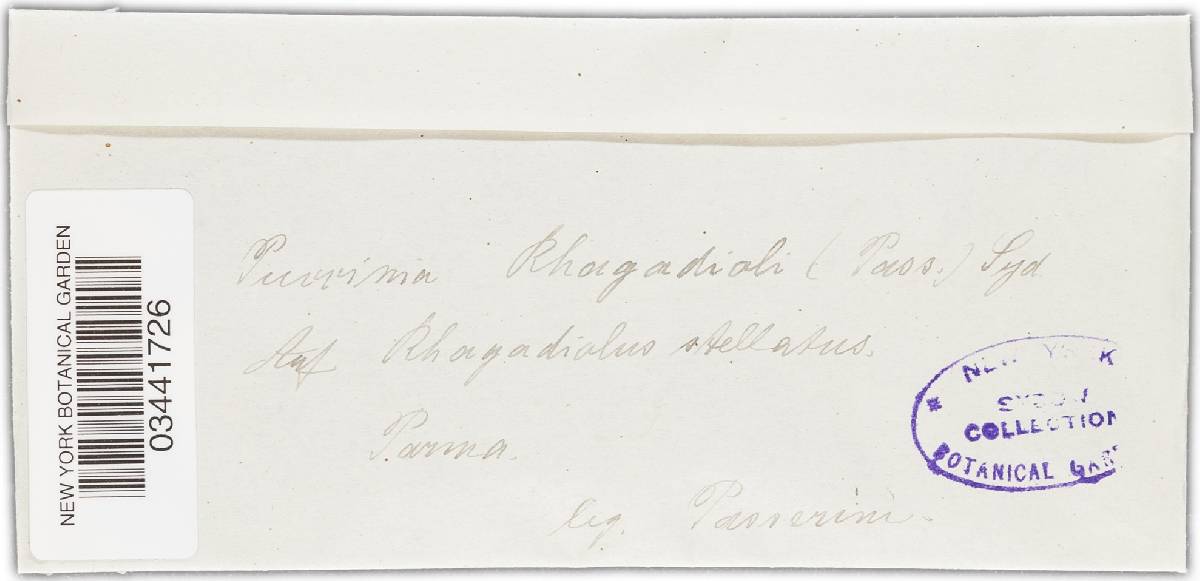 Puccinia Rhagadioli (Pass.) Syd
Auf Rhagadiolus stellatus.
Parma.
leg. Passerini.
NEW YORK BOTANICAL GARDEN
03441726
* NEW YORK
SYDOW
COLLECTION
BOTANICAL GARD